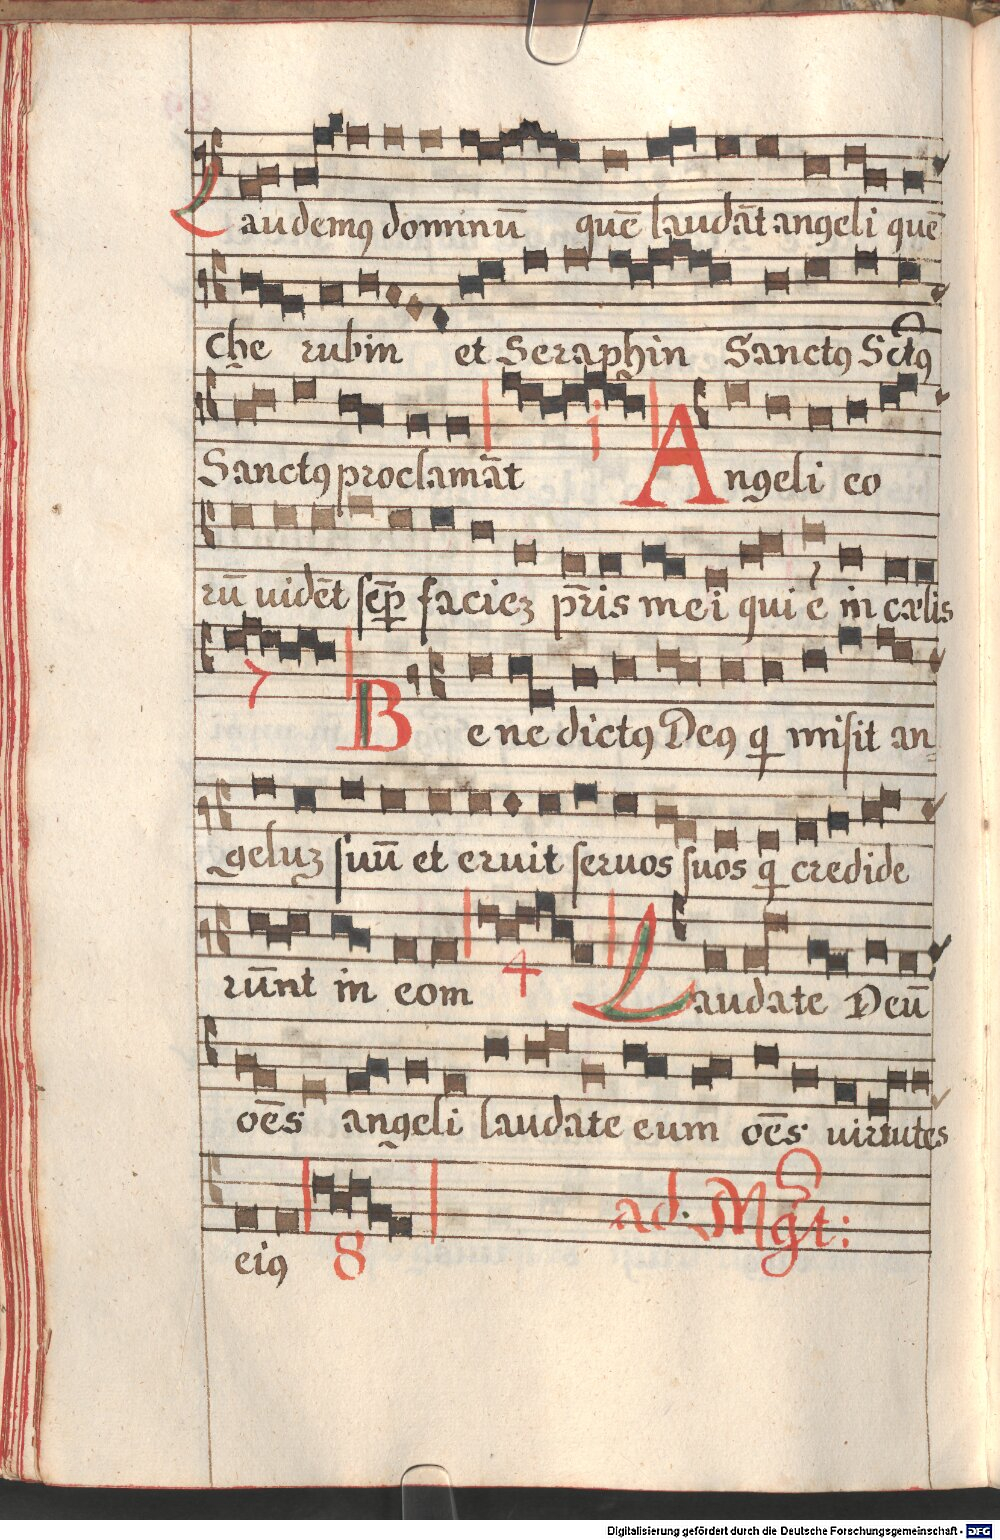 Laudemꝰ dominū quē laudāt angeli quē
Che rubin et Seraphin Sanctꝰ Sctꝰ
Sanctꝰ proclamāt i Angeli eo
rū uidēt sēꝑ faciēꝫ pr̄is mei qui ē in cælis
7 Benedictꝰ Deꝰ qͥ misit an
geluꝫ suū et eruit seruos suos qͥ credide
rūnt in eom 4 Laudate Deū
oēs angeli laudate eum oēs uirtutes
eiꝰ 8 ad. Mgt:
Digitalisierung gefördert durch die Deutsche Forschungsgemeinschaft - DFG